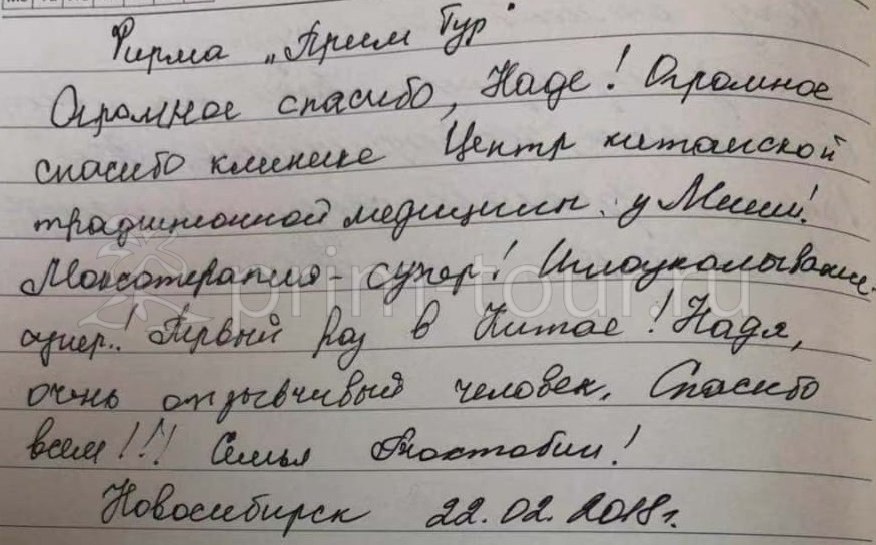 Фирма „Прим Тур"
Огромное спасибо, Наде! Огромное
спасибо клинике Центр китайской
традиционной медицины у Миши!
Моксотерапия - супер! Иглоукалывание-
супер! Первый раз в Китае! Надя,
очень отзывчивый человек. Спасибо
всем!!! Семья
Новосибирск 22.02.2018г.
prim-tour.ru